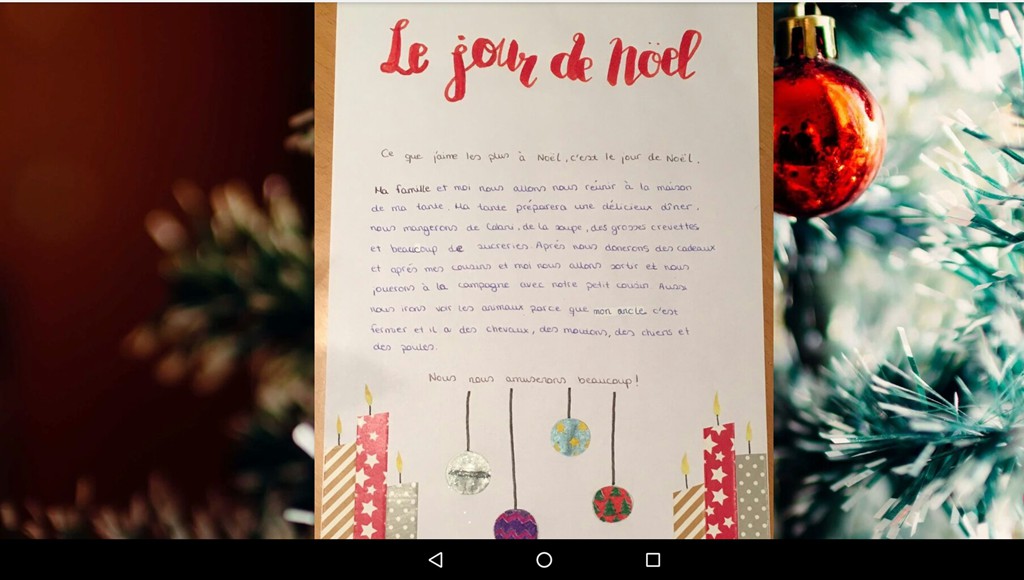 Le jour de Nöel
Ce que j'aime les plus à Noël, c'est le jour de Noël.
Ma famille et moi nous allons nous réunir à la maison
de ma tante. Ma tante préparera une délicieux dîner.
nous mangerons de Calani, de la soupe, des grosses crevettes
et beaucoup de sucreries. Aprés nous donerons des cadeaux
et aprés mes cousins et moi nous allons sortir et nous
jouerons à la campagne avec notre petit cousin. Aussi
nous irons voir les animaux parce que mon oncle c'est
fermier et il a des chevaux, des moutons, des chiens et
des poules.
Nous nous amuserons beaucoup!